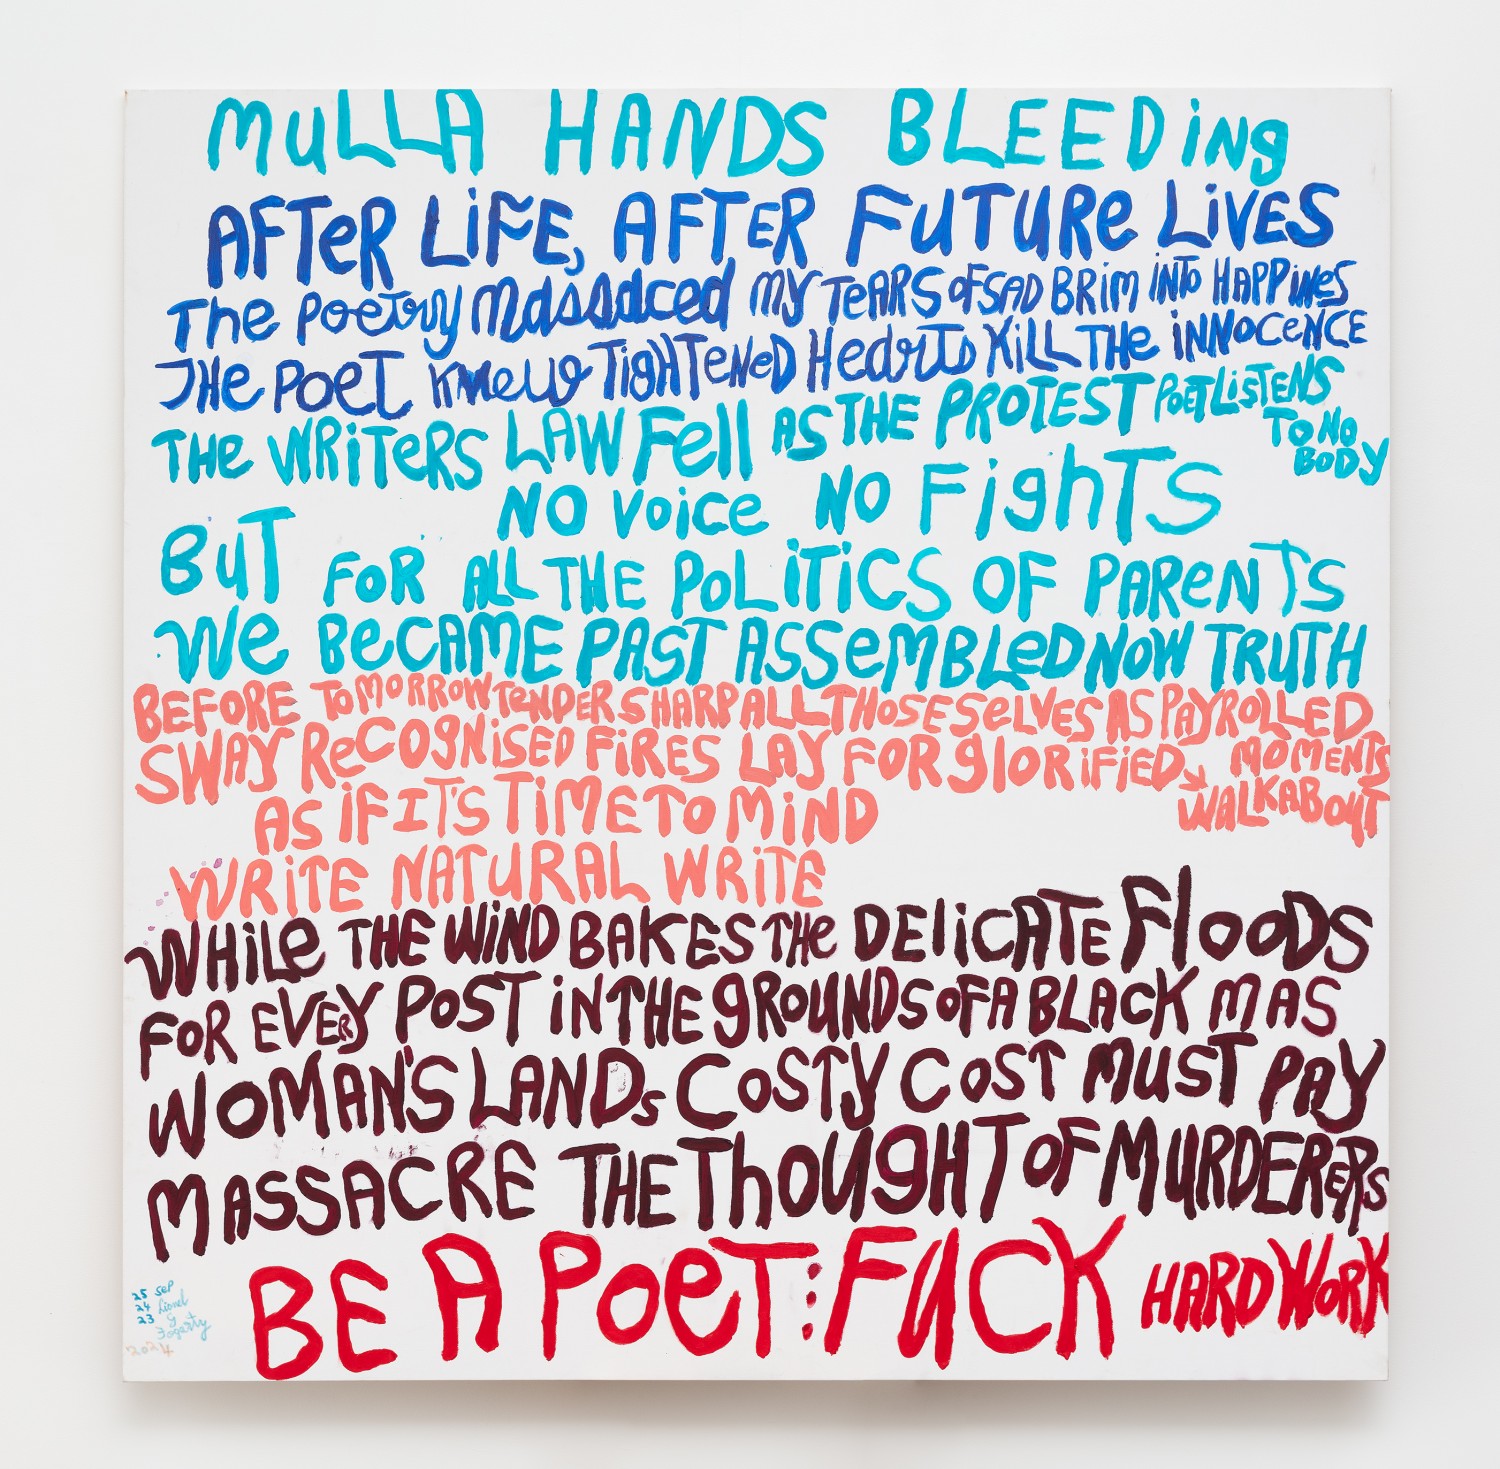 MuLLA HANDS BLEEDiNg
AFTeR LiFE, AFTER FuTURe LiVES
THe POeTry MASSACED MY TeARS OF SAD BRiM iNTO HAPPiNeS
THe POET KNew TigHTeNeD HeArTs KiLL THe iNNOCeNCE
THe WRiTeRS LAW Fell AS THE PROTEST POET LiSTENS
TO NO
BODY
NO VoicE NO FighTS
BuT FOR ALL THE POLiTiCS OF PAReNTS
We BeCAME PAST ASSeMBLeD NOW TRUTH
BEFORE TOMORROW TeNDER SHARP ALL THOSE SeLVES AS PAYROLLED
SWAY ReCOgNiSED FiRES LAY FOR glORiFiED MOMENTS
WALKABOUT
AS iF IT'S TiME TO MiND
WRiTE NATURAL WRiTE
WHiLe THE WiND BAKES THe DELiCATE FlOODS
FOR EVERY POST iN THE gROUNDS OF A BLACK MAS
WOMAN'S LANDs COSTY COST MUST PAY
MASSACRE THE ThOUgHT OF MURDERERs
BE A POeT: FuCK HARD WORK
25 Sep
24 Lionel
23 G
Fogarty
2024